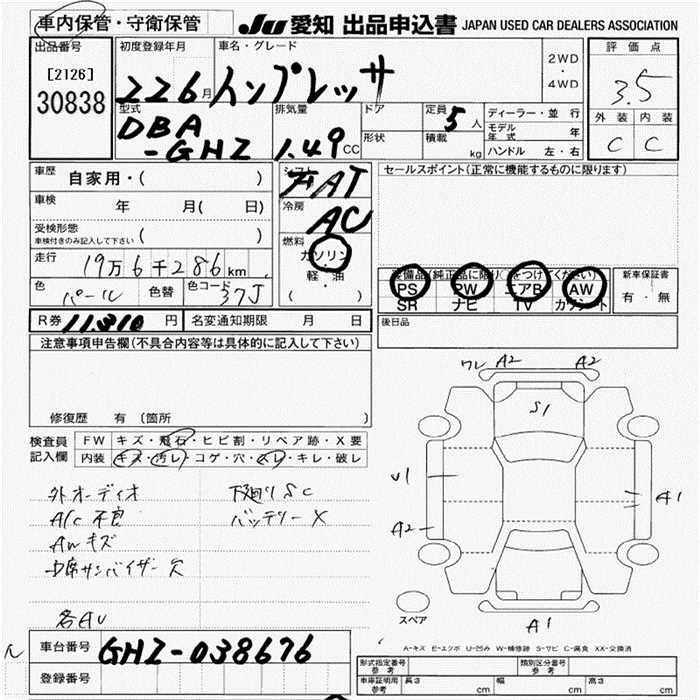 車内保管・守衛保管
JU 愛知 出品申込書 JAPAN USED CAR DEALERS ASSOCIATION
出品番号
[2126]
30838
初度登録年月
226月
車名・グレード
インプレッサ
2WD
・
4WD
評価点
3.5
外装 内装
C C
型式
DBA
-GH2
排気量
1.49cc
ドア
形状
定員 5人
積載 kg
ディーラー・並行
モデル年式 年
ハンドル 左・右
車歴 自家用・( )
車検 年 月( 日)
受検形態
車検付きのみ記入して下さい ( )
走行 19万6千286km
色 パール 色替 色コード 37J
シフト
FAT
冷房
AC
燃料
ガソリン
・
軽・油
( )
セールスポイント(正常に機能するものに限ります)
装備品(純正品に限り○をつけてください)
PS PW エアB AW
SR ナビ TV カワシート
新車保証書
有・無
R券 11,310円 名変通知期限 月 日
後日品
注意事項申告欄(不具合内容等は具体的に記入して下さい)
修復歴 有(箇所
検査員
記入欄
FW キズ・飛石・ヒビ割・リペア跡・X要
内装 キズ・汚レ・コゲ・穴・スレ・キレ・破レ
外オーディオ
A/C不良
AWキズ
中席サンバイザー欠
各AU
下廻りSC
バッテリーX
ワレ A2 A2
S1
U1
A2
A1
A1
スペア
A-キズ E-エクボ U-凹み W-補修跡 S-サビ C-腐食 XX-交換済
車台番号 GH2-038676
登録番号
形式指定番号
参考
類別区分番号
参考
車庫証明用
参考
長さ cm 幅 cm 高さ cm